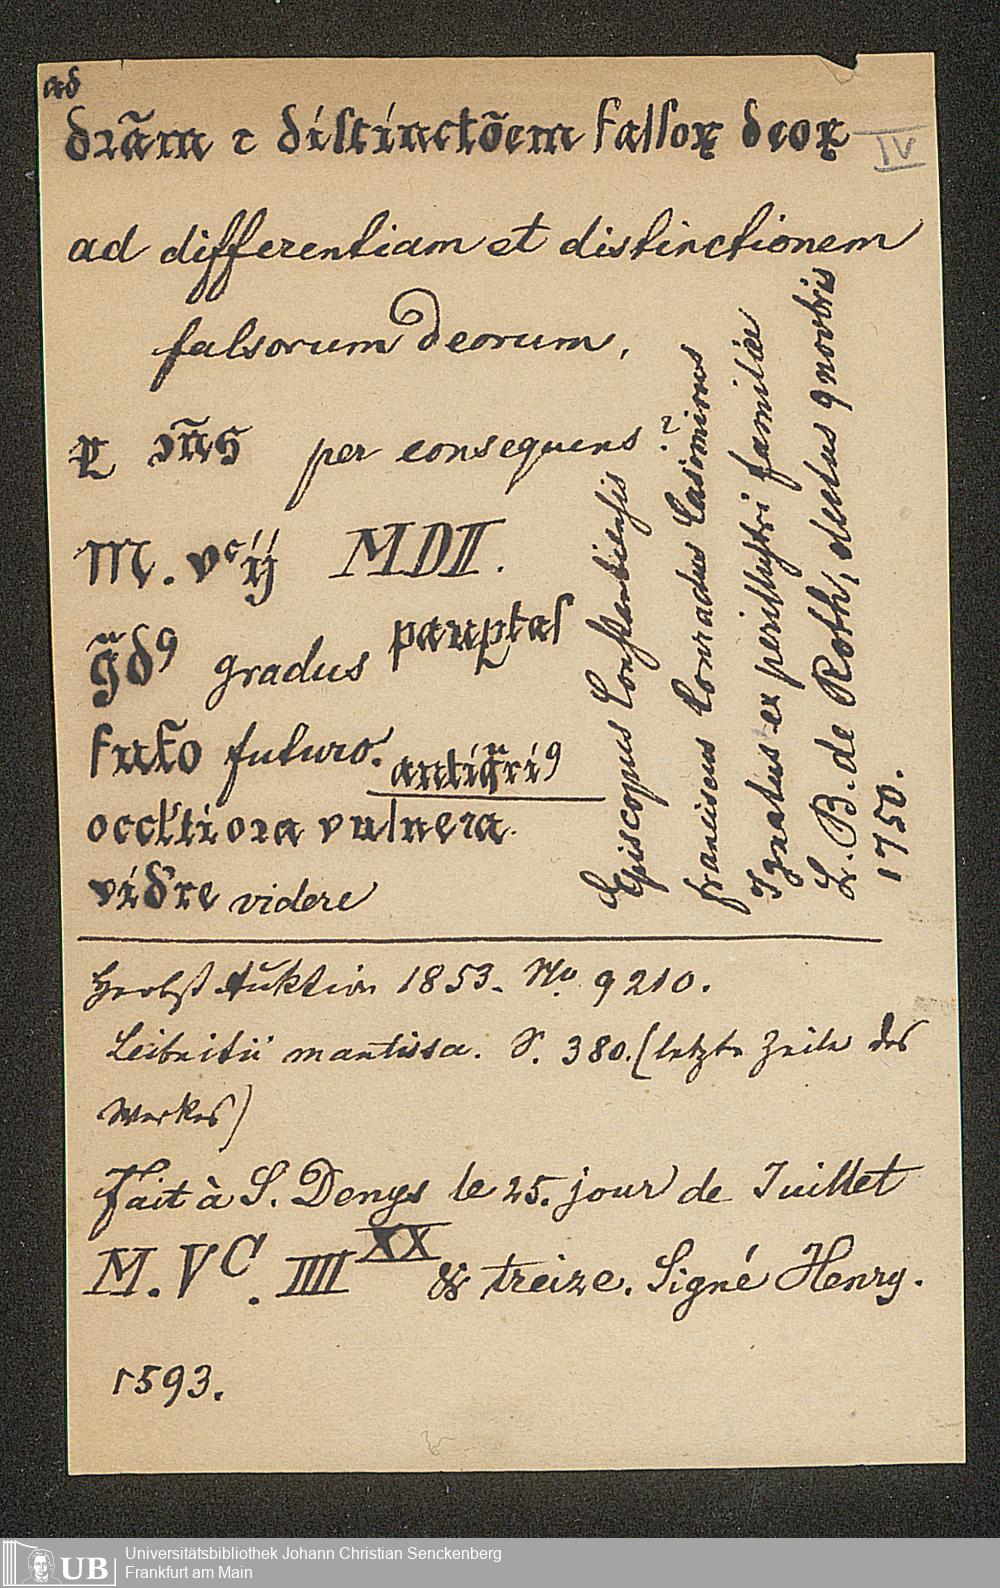 ad
drãm ꝛ distinctõem falsoꝝ deoꝝ
IV
ad differentiam et distinctionem
falsorum Deorum,
ꝑ ↄ̃ñs per consequens?
M. vᶜij MDII.
g̃dꝰ gradus pauꝑtas
fut̃o futuro. antiq̃riꝰ
occl̃tiora vulnera.
vid̃re videre
Episcopus Constantiensis
franciscus Conradus Casimirus
Ignatus ex perillustri familiæ
L. B. de Roth, elctus 9 novbris
1750.
Herbst Auktion 1853. No 9210.
Leibnitii mantissa. S. 380. (letzte Zeile des
Werkes)
Fait à S. Denys le 25. jour de Juillet
M. Vᶜ. IIII XX & treize. Signé Henry.
1593.
UB
Universitätsbibliothek Johann Christian Senckenberg
Frankfurt am Main